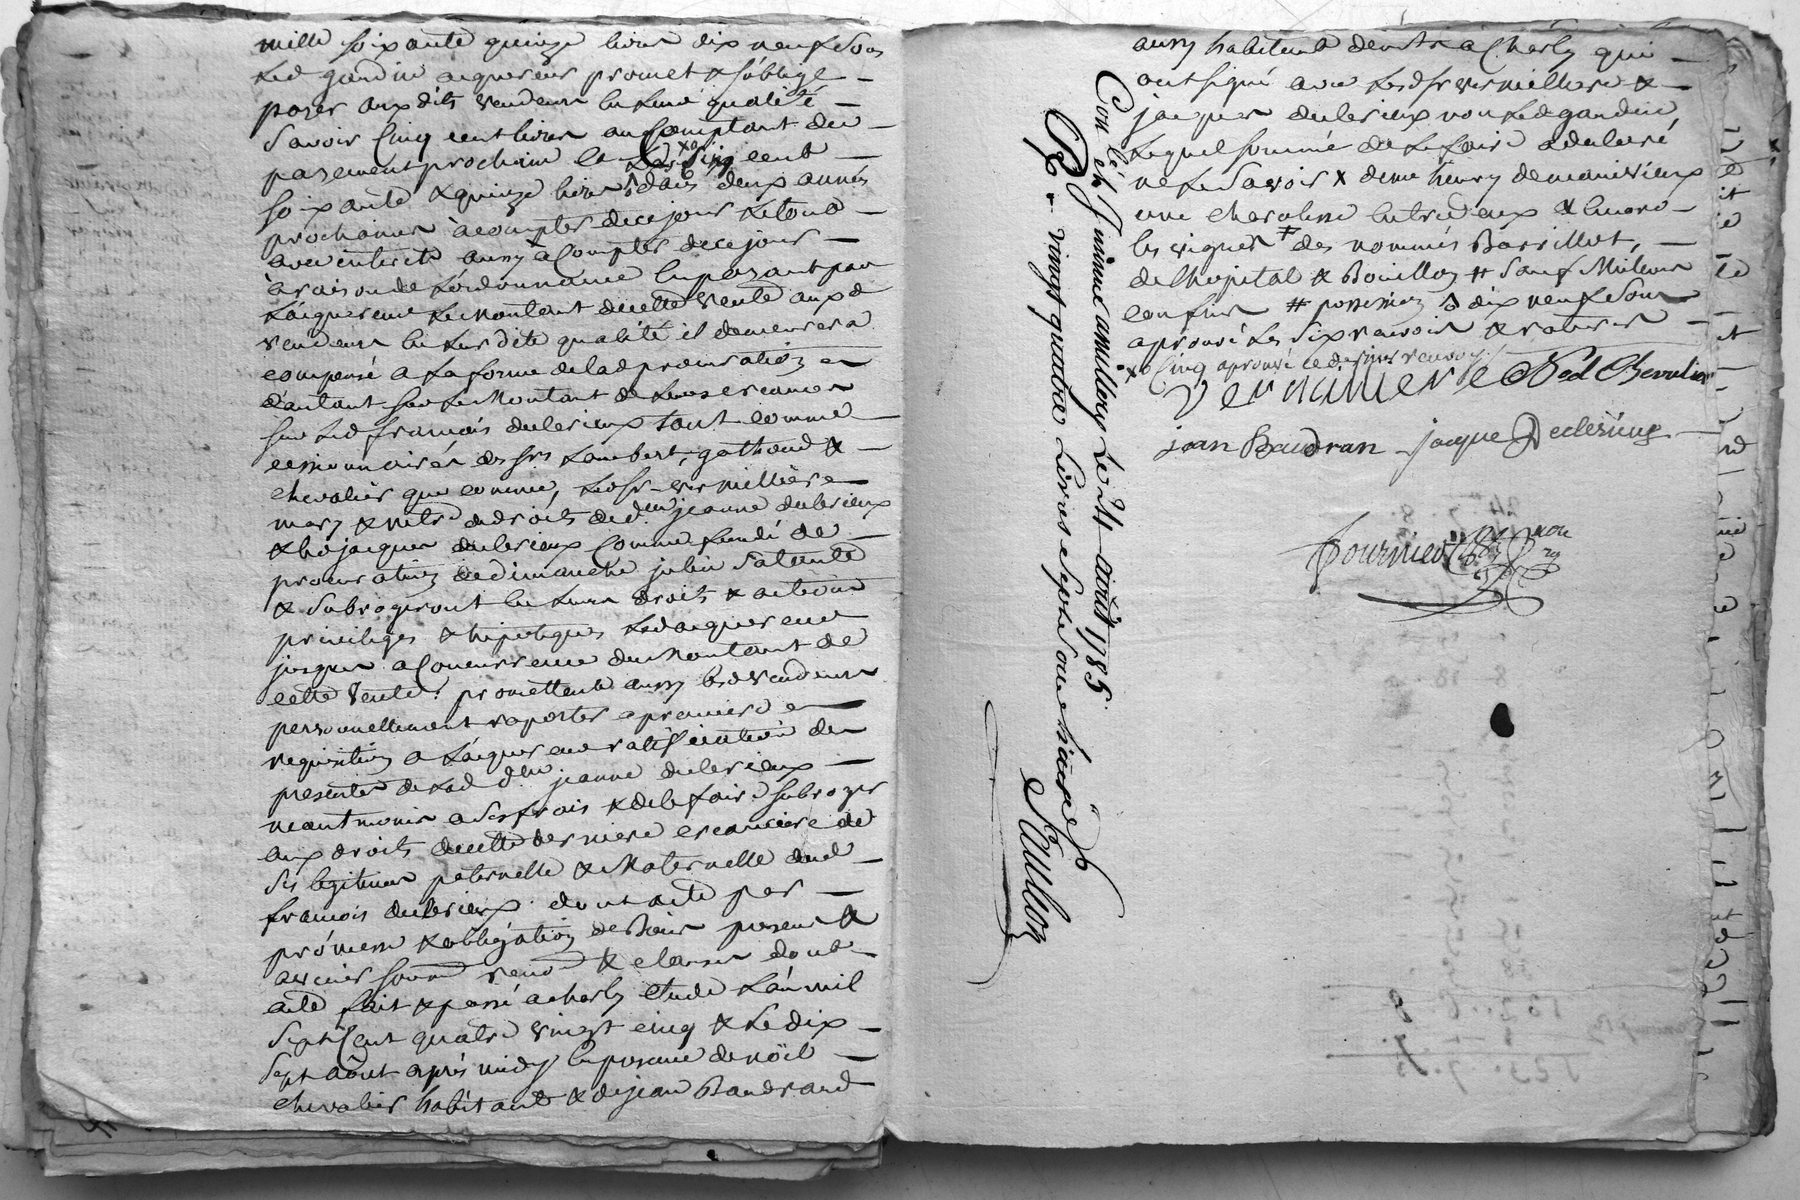 mille soixante quinze livres dix neuf sous
Led gandin acquereur promet & s'obblige
payer auxdits vendeurs en leur qualité
savoir Cinq cent livres au Comptant du
payement prochain et les Cinq cent
soixante & quinze livres dans deux années
prochaines à compter de ce jour le tout
avec interets aussy à Compter de ce jour
à raison de L'ordonnance en payant par
L'acquereur Le Montant de cette vente auxd
vendeurs en leur dite qualité il demeurera
compensé a La forme de lad procuration
d'autant sur Le Montant de leurs creances
sur Led françois duclerieux tant comme
cessionnaires des srs Lambert, gathaud &
chevalier que comme, Ledsr vermilliere
mary & mtre des droits de dlle jeanne duclerieux
& led jacques duclerieux Comme fondé de
procuration de dimanche julin sa tante
& subrogeront en leurs droits & actions
privileges & hipoteques Led acquereur
jusques a Concurrence du Montant de
cette vente. promettent aussy lesd vendeurs
personnellement raporter a premiere
requisition a L'acquereur ratiffication des
presentes de Lad dlle jeanne duclerieux
neantmoins a ses frais & de le faire subroger
aux droits de cette derniere creanciere de
ses legitimes paternelle & Maternelle dud
françois duclerieux. dont acte par
promesse & obbligation de Biens presents &
avenirs soumd renond & clauses dont
acte fait & passé a charly etude L'an mil
sept Cent quatre vingt cinq & Le dix
sept août après midy en presence de noël
chevalier habitant & de jean Baudrand
aussy habitant demt a Charly qui
ont signé avec Ledsr vermilliere &
jacques duclerieux non Led gandin,
Lequel sommé de Le faire a declaré
ne Le savoir
une chevaliere entre deux
les vignes # des nommés Barillot,
de L'hopital & Bouillon # sauf Meilleurs
confins # dix neuf sous
aprouvé Les six renvois & ratures
x Cinq aprouvé ce dernier renvoy
Vermiliere Noel Chevalier
jean Baudran jacque Declerieux
Fournier
Con lé et Insinué a millery Le 24 août 1785
R. vingt quatre Livres sept sous
Saullon